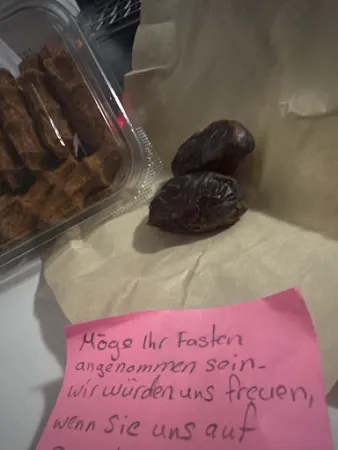 Möge Ihr Fasten
angenommen sein.
wir würden uns freuen,
wenn Sie uns auf